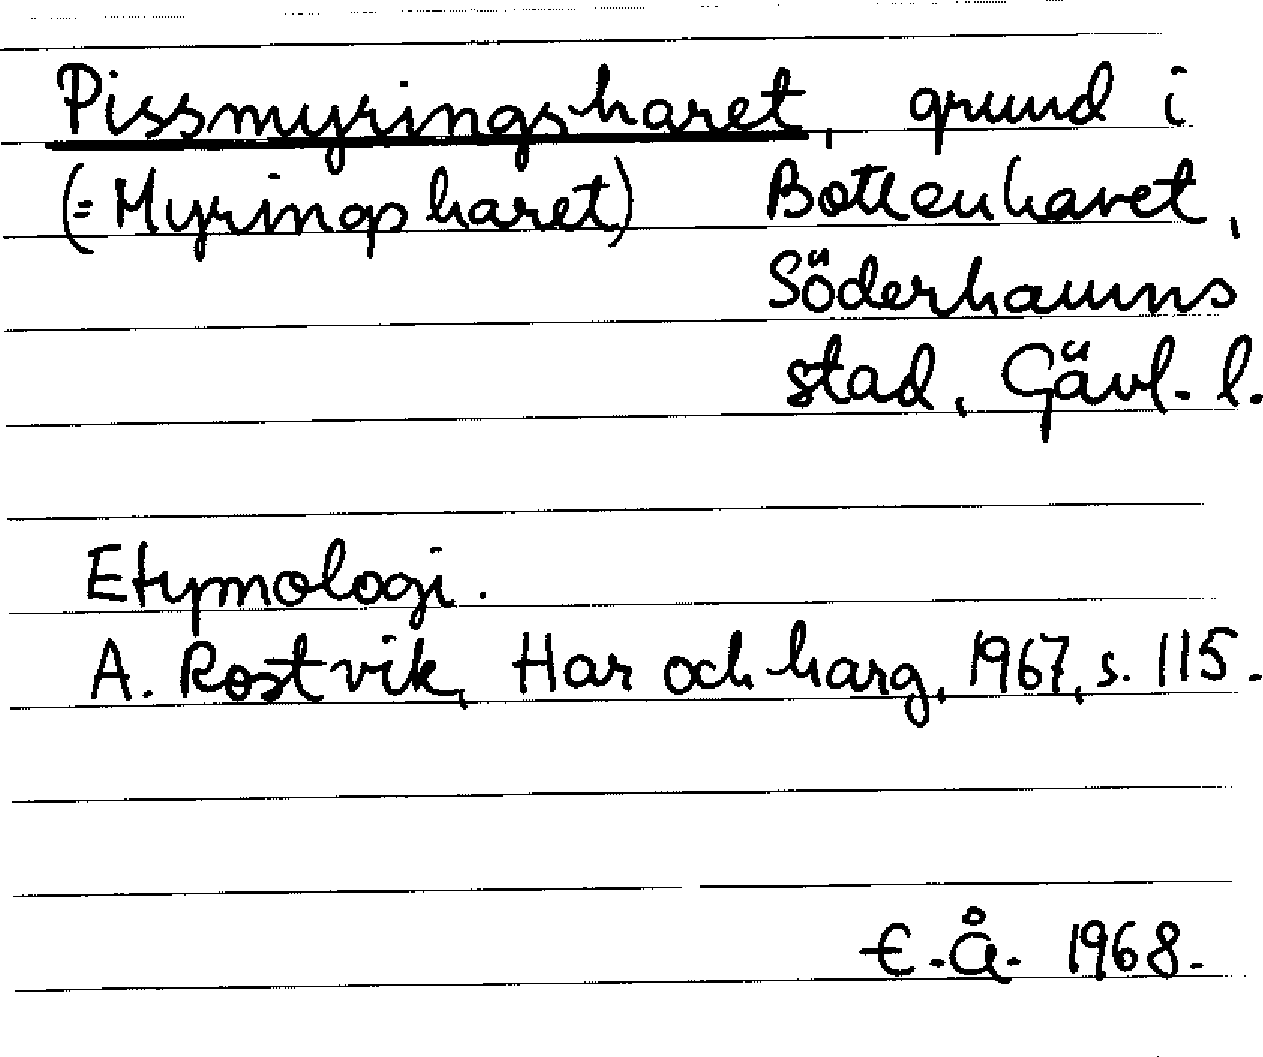 Pissmyringsharet, grund i
(= Myringsharet) Bottenhavet,
Söderhamns
stad, Gävl. l.
Etymologi.
A. Rostvik, Har och harg, 1967, s. 115.
E. Å. 1968.